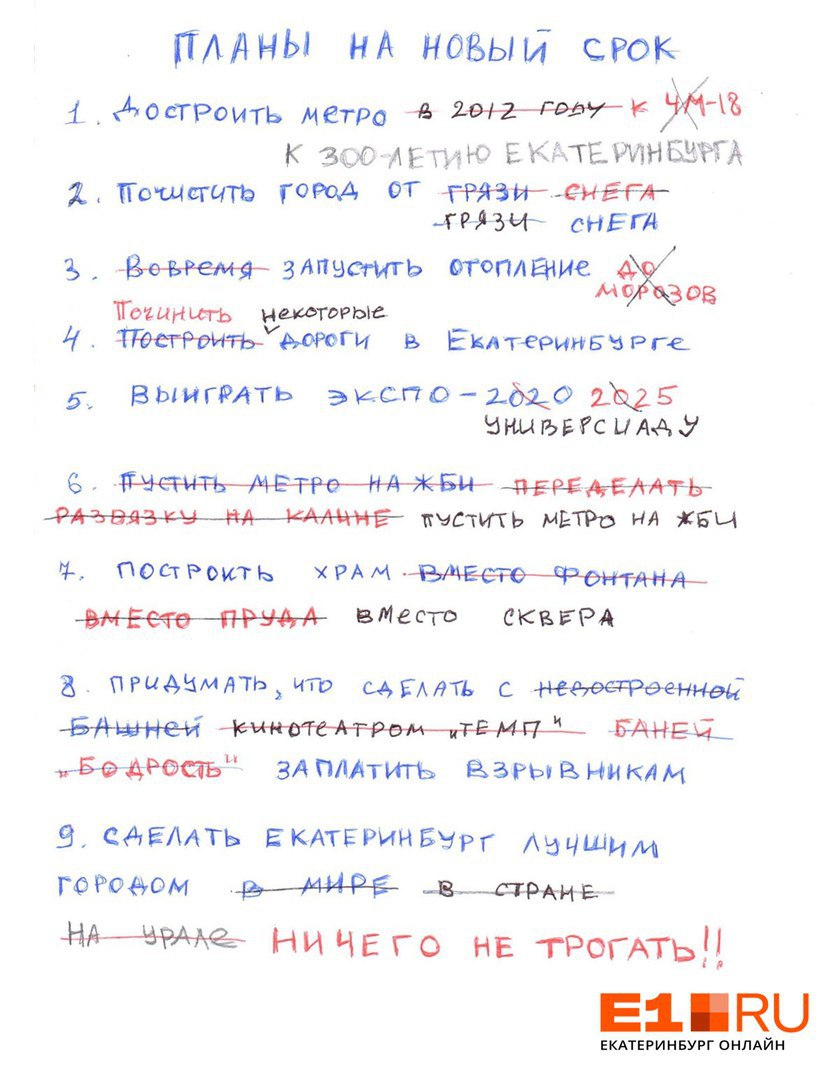 ПЛАНЫ НА НОВЫЙ СРОК
1. ДОСТРОИТЬ МЕТРО В 2012 ГОДУ К ЧМ-18
К 300-ЛЕТИЮ ЕКАТЕРИНБУРГА
2. ПОЧИСТИТЬ ГОРОД ОТ ГРЯЗИ СНЕГА
ГРЯЗИ СНЕГА
3. ВОВРЕМЯ ЗАПУСТИТЬ ОТОПЛЕНИЕ ДО
МОРОЗОВ
ПОЧИНИТЬ НЕКОТОРЫЕ
4. ПОСТРОИТЬ ДОРОГИ В ЕКАТЕРИНБУРГЕ
5. ВЫИГРАТЬ ЭКСПО-2020 2025
УНИВЕРСИАДУ
6. ПУСТИТЬ МЕТРО НА ЖБИ ПЕРЕДЕЛАТЬ
РАЗВЯЗКУ НА КАЛИНЕ ПУСТИТЬ МЕТРО НА ЖБИ
7. ПОСТРОИТЬ ХРАМ ВМЕСТО ФОНТАНА
ВМЕСТО ПРУДА ВМЕСТО СКВЕРА
8. ПРИДУМАТЬ, ЧТО СДЕЛАТЬ С НЕДОСТРОЕННОЙ
БАШНЕЙ КИНОТЕАТРОМ „ТЕМП" БАНЕЙ
„БОДРОСТЬ" ЗАПЛАТИТЬ ВЗРЫВНИКАМ
9. СДЕЛАТЬ ЕКАТЕРИНБУРГ ЛУЧШИМ
ГОРОДОМ В МИРЕ В СТРАНЕ
НА УРАЛЕ НИЧЕГО НЕ ТРОГАТЬ!!
E1.RU
ЕКАТЕРИНБУРГ ОНЛАЙН